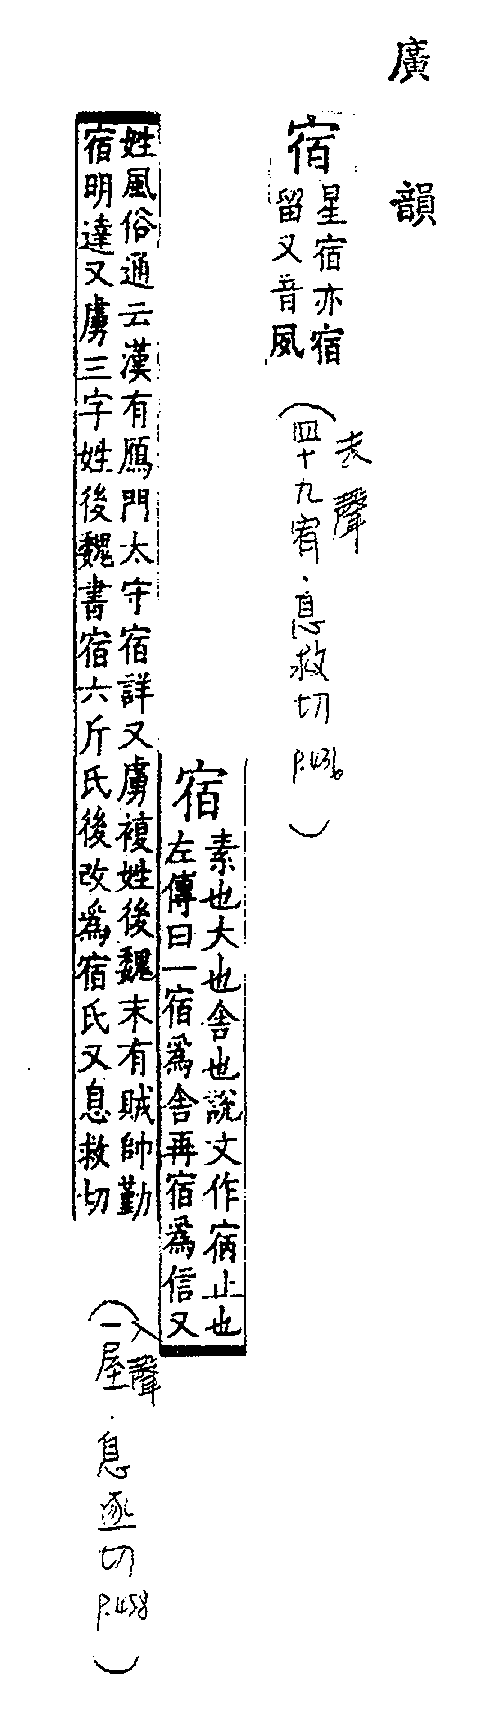 廣韻
宿
星宿亦宿
留又音夙
去聲
(四十九宥.息救切 p.436)
宿
素也大也舍也說文作㝛止也
左傳曰一宿爲舍再宿爲信又
姓風俗通云漢有鴈門太守宿詳又虜複姓後魏末有賊帥勤
宿明達又虜三字姓後魏書宿六斤氏後改爲宿氏又息救切
入聲
(一屋.息逐切 p.458)